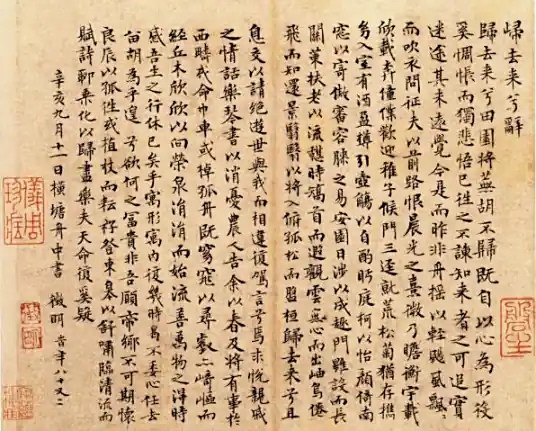 歸去来兮辭
歸去来兮田園將蕪胡不歸既自以心為形役
奚惆悵而獨悲悟已往之不諫知来者之可追實
迷途其未遠覺今是而昨非舟摇以輕颺風飄飄
而吹衣問征夫以前路恨晨光之熹微乃瞻衡宇載
欣載奔僮僕歡迎稚子候門三逕就荒松菊猶存攜
幼入室有酒盈罇引壺觴以自酌眄庭柯以怡顏倚南
窓以寄傲審容膝之易安園日涉以成趣門雖設而長
關策扶老以流憩時矯首而遐觀雲無心而出岫鳥倦
飛而知還景翳翳以將入撫孤松而盤桓歸去来兮且
息交以請絕遊世與我而相違復駕言兮焉求悅親戚
之情話樂琴書以消憂農人告余以春及將有事於
西疇或命巾車或棹孤舟既窈窕以尋壑亦崎嶇而
經丘木欣欣以向榮泉涓涓而始流善萬物之得時
感吾生之行休已矣乎寓形寓內復幾時曷不委心任去
留胡為乎遑遑兮欲何之富貴非吾願帝鄉不可期懷
良辰以孤往或植杖而耘耔登東皋以舒嘯臨清流而
賦詩聊乘化以歸盡樂夫天命復奚疑
辛亥九月十一日橫塘舟中書 徵明 時年八十又二